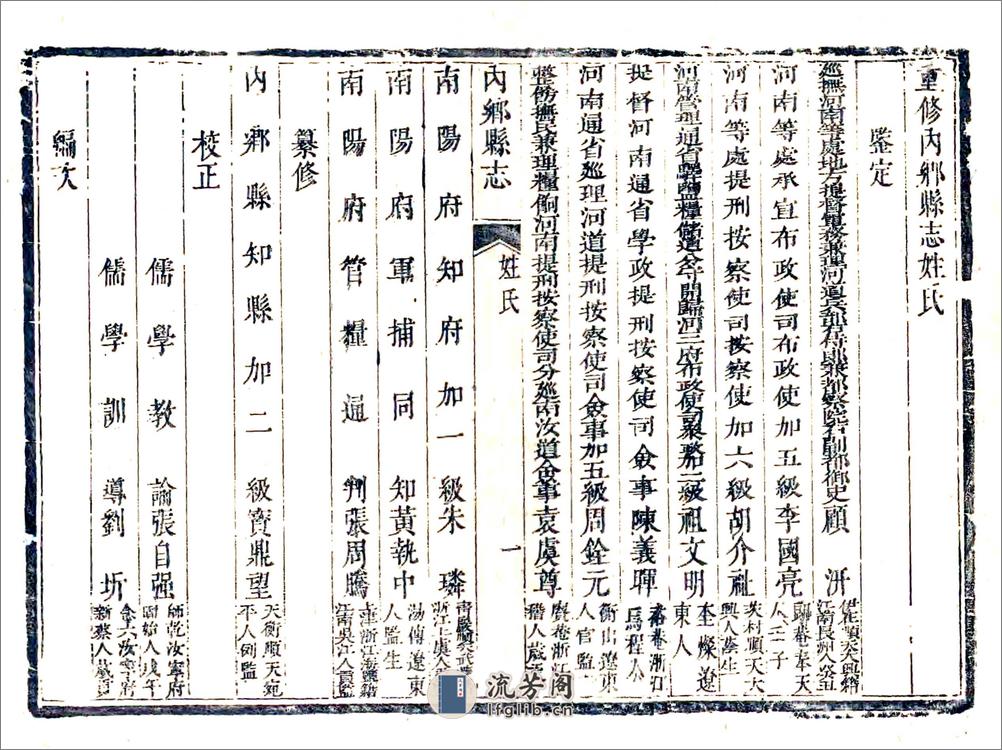 重修內鄉縣志姓氏
鑒定
巡撫河南等處地方提督軍務兼理河道兵部右侍郎兼都察院右副都御史顧汧
河南等處承宣布政使司布政使加五級李國亮
河南等處提刑按察使司按察使加六級胡介祉
河南管理通省驛鹽糧儲道分守開歸河三府布政使司叅議加二級祖文明
奎燦遼
東人
提督河南通省學政提刑按察使司僉事陳義暉
河南通省巡理河道提刑按察使司僉事加五級周銓元
衡山遼東
人官監
整飭撫民兼理糧餉河南提刑按察使司分巡南汝道僉事袁虞尊
內鄉縣志
姓氏
一
南陽府知府加一級朱璘
南陽府軍捕同知黃執中
湯傳遼東
人監生
南陽府管糧通判張周騰
纂修
內鄉縣知縣加二級寶鼎望
天衡順天宛
平人例監
校正
儒學教諭張自强
儒學訓導劉圻
編次
流芳阁
lfglib.cn